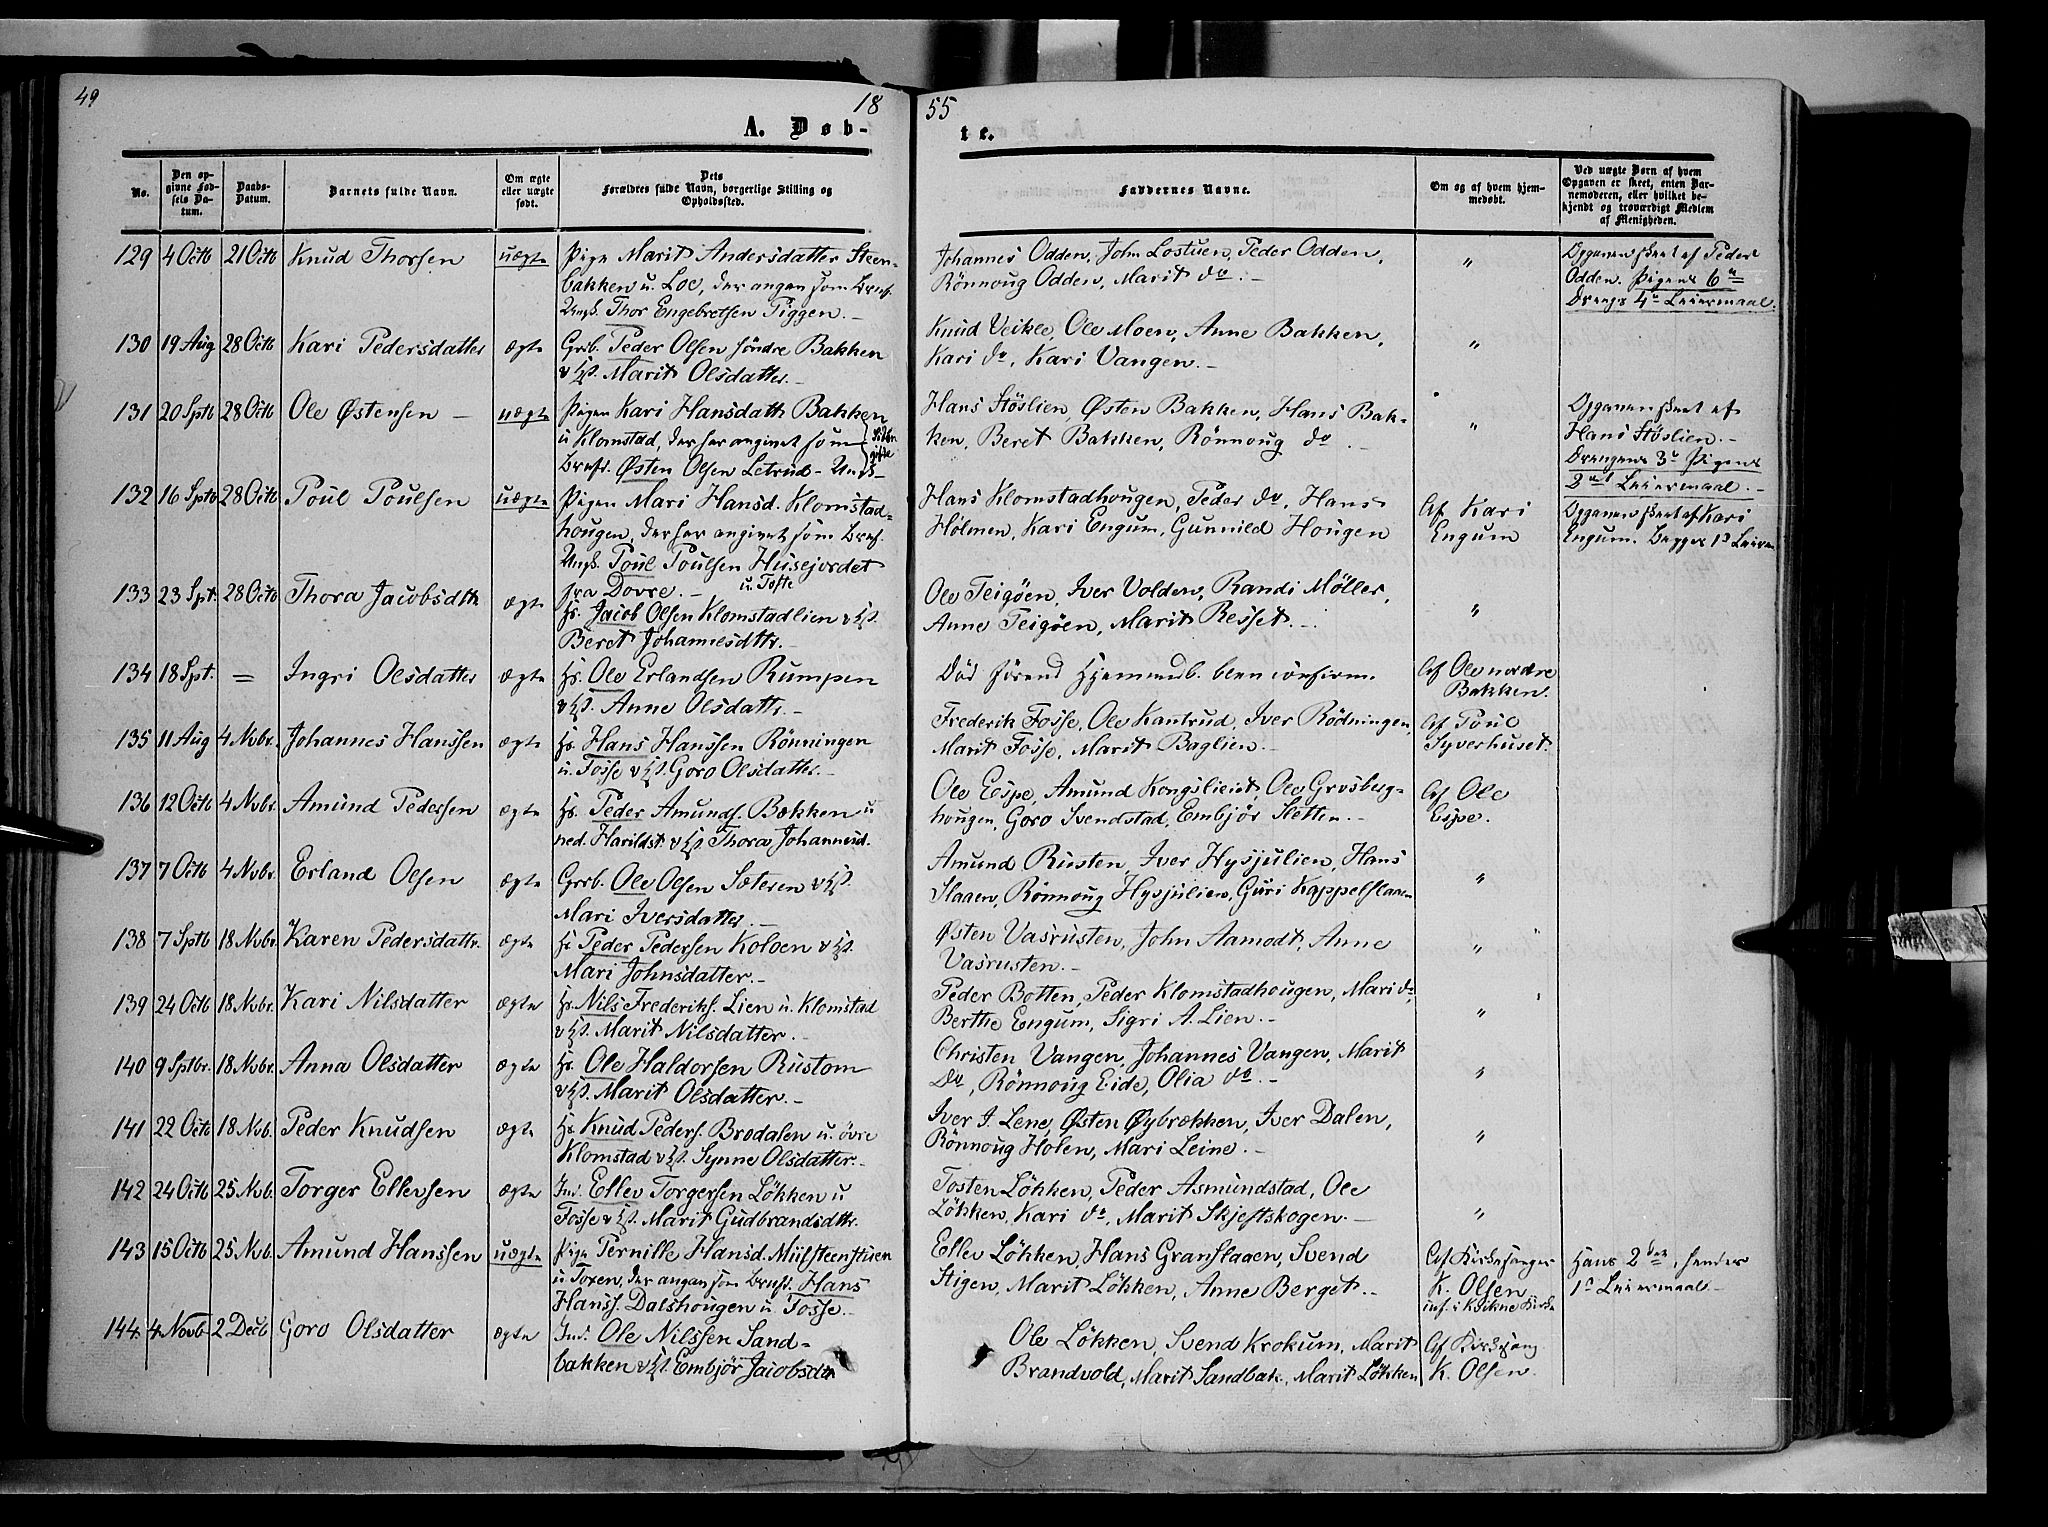 49
18
55
A. Døb-
te.
No.
Den op-
givne Fød-
sels Da-
tum.
Daabs-
Datum.
Barnets fulde Navn.
Om ægte
eller uægte
født.
Dets
Forældres fulde Navn, borgerlige Stilling og
Opholdssted.
Faddernes Navne.
Om og af hvem hjem-
medøbt.
Ved uægte Børn af hvem
Opgaven er skeet, enten Bar-
nemoderen, eller hvilket be-
kjendt og troværdigt Medlem
af Menigheden.
129 4 Octb 21 Octb Knud Thorsen uægte Pige Marit Andersdatter Steen-
bakken u. Loe, der angav som Brnf.
Ungk. Thor Engebretsen Piggen. -
Johannes Odden, John Lostuen, Peder Odden,
Rönnoug Odden, Marit do. -
"
Opgaven skeet af Peder
Odden. Pigens 6te
Drengs 4de Leiermaal.
130 19 Aug 28 Octb Kari Pedersdatter ægte Grb. Peder Olsen söndre Bakken
v Hst. Marit Olsdatter. -
Knud Veikle, Ole Moen, Anne Bakken,
Kari do, Kari Vangen. -
"
131 20 Sptb 28 Octb Ole Østensen - uægte Pigen Kari Hansdatt Bakken
u Klomstad der har angivet som
Brnfr. Østen Olsen Letrud - Ungk -
Hans Stöslien, Østen Bakken, Hans Bak-
ken, Beret Bakken, Rönnoug do -
"
Opgaven skeet af
Hans Stöslien. -
Drengens 3de Pigens
2det Leiermaal. -
132 16 Sptb 28 Octb Poul Poulsen uægte Pigen Mari Hansd. Klomstad-
hougen, der har angivet som Brnf.
Ungk. Poul Poulsen Husejordet
fra Dovre. - u. Tofte
Hans Klomstadhougen, Peder do, Hans
Holmen, Kari Engum, Gunnild Hougen
Af Kari
Engum
Opgaven skeet af Kari
Engum. Begges 1ste Leierm
133 23 Spt. 28 Octb Thora Jacobsdtt ægte Hs. Jacob Olsen Klomstadlien v Hst.
Beret Johannesdttr. -
Ole Teigöen, Iver Volden, Randi Möller,
Anne Teigöen, Marit Resset. -
"
134 18 Spt. = Ingri Olsdatter ægte Hs. Ole Erlandsen Rumpen
v Hst. Anne Olsdattr. -
Död förend Hjemmedb. blev confirm.
Af Ole nordre
Bakken.
135 11 Aug 4 Nvbr. Johannes Hanssen ægte Hs. Hans Hanssen Rönningen
u. Fosse v Hst. Goro Olsdatter. -
Frederik Fosse, Ole Kantrud, Iver Rödningen,
Marit Fosse, Marit Baglien. -
Af Poul
Syverhuset.
136 12 Octb 4 Nvbr. Amund Pedersen ægte Hs. Peder Amunds. Bækken u
ned. Harildst. v Hst Thora Johannesd.
Ole Espe, Amund Kongslieiet, Ole Grosberg-
hougen, Goro Svendstad, Embjör Sletten. -
Af Ole
Espe.
137 7 Octb 4 Nvbr. Erland Olsen ægte Grb. Ole Olsen Sæteren v Hst.
Mari Iversdatter. -
Amund Rusten, Iver Hysjulien, Hans
Slaaen, Rönnoug Hysjulien, Guri Kappelslaaen
"
138 7 Sptb 18 Nvbr. Karen Pedersdattr. ægte Hs Peder Pedersen Koloen v Hst.
Mari Johnsdatter. -
Østen Vasrusten, John Aamodt, Anne
Vasrusten. -
"
139 24 Octb 18 Nvbr. Kari Nilsdatter ægte Hs. Nils Frederiks. Lien u. Klomstad
v Hst. Marit Nilsdatter. -
Peder Botten, Peder Klomstadhougen, Mari do,
Berthe Engum, Sigri A. Lien. -
"
140 9 Sptbr. 18 Nvbr. Anna Olsdatter ægte Hs. Ole Haldorsen Rustom
v Hst. Marit Olsdatter. -
Christen Vangen, Johannes Vangen, Marit
Do, Rönnoug Eide, Olia do. -
"
141 22 Octb 18 Nvb. Peder Knudsen ægte Hs Knud Peders. Brodalen u. övre
Klomstad v Hst. Synne Olsdatter. -
Iver J. Lene, Østen Øybrækken, Iver Dalen,
Rönnoug Holen, Mari Leine. -
"
142 24 Octb 25 Nvb. Torger Ellevsen ægte Ind. Ellev Torgersen Lökken u
Fosse v Hst. Marit Gudbrandsdttr.
Tosten Lökken, Peder Asmundstad, Ole
Lökken, Kari do, Marit Skjeftskogen. -
"
143 15 Octb 25 Nvb. Amund Hanssen uægte Pige Pernille Hansd. Mülsteenstuen
u Toxen, der angav som Brnf. Hans
Hanss. Dalshougen u Fosse. -
Ellev Lökken, Hans Granslaaen, Svend
Stigen, Marit Lökken, Anne Berget. -
Af Kirkesanger
K. Olsen
inf. i Kvikne Kirke
Hans 2den, hendes
1ste Leiermaal. -
144 4 Novb 2 Decb Goro Olsdatter ægte Ind. Ole Nilssen Sand-
bakken v Hst. Embjör Jacobsdtr
Ole Lökken, Svend Krokum, Marit
Brandvold, Marit Sandbak., Marit Lökken
Af Kirkesang
K. Olsen.